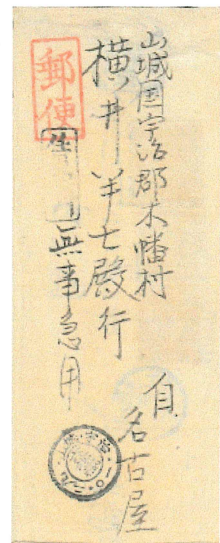 山城国宇治郡木幡村
横井半七殿行
郵便
無事急用
自
名古屋